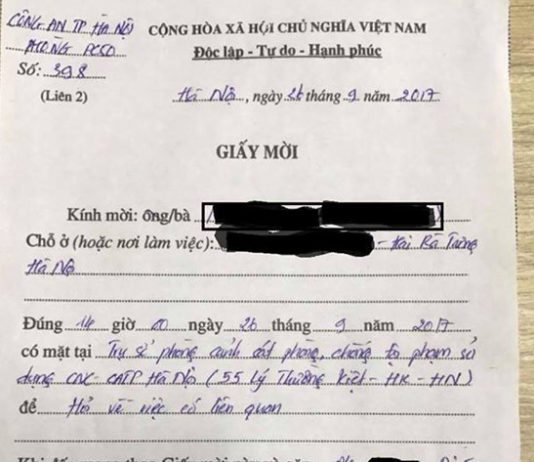 CÔNG AN TP Hà Nội CỘNG HÒA XÃ HỘI CHỦ NGHĨA VIỆT NAM
PHÒNG PC50 Độc lập - Tự do - Hạnh phúc
Số: 398
(Liên 2) Hà Nội, ngày 26 tháng 9 năm 2017
GIẤY MỜI
Kính mời: ông/bà
Chỗ ở (hoặc nơi làm việc): - Hai Bà Trưng
Hà Nội
Đúng 14 giờ 00 ngày 26 tháng 9 năm 2017
có mặt tại Trụ sở phòng cảnh sát phòng, chống tội phạm sử
dụng CNC - CATP Hà Nội (55 Lý Thường Kiệt - HK - HN)
để Hỏi về việc có liên quan